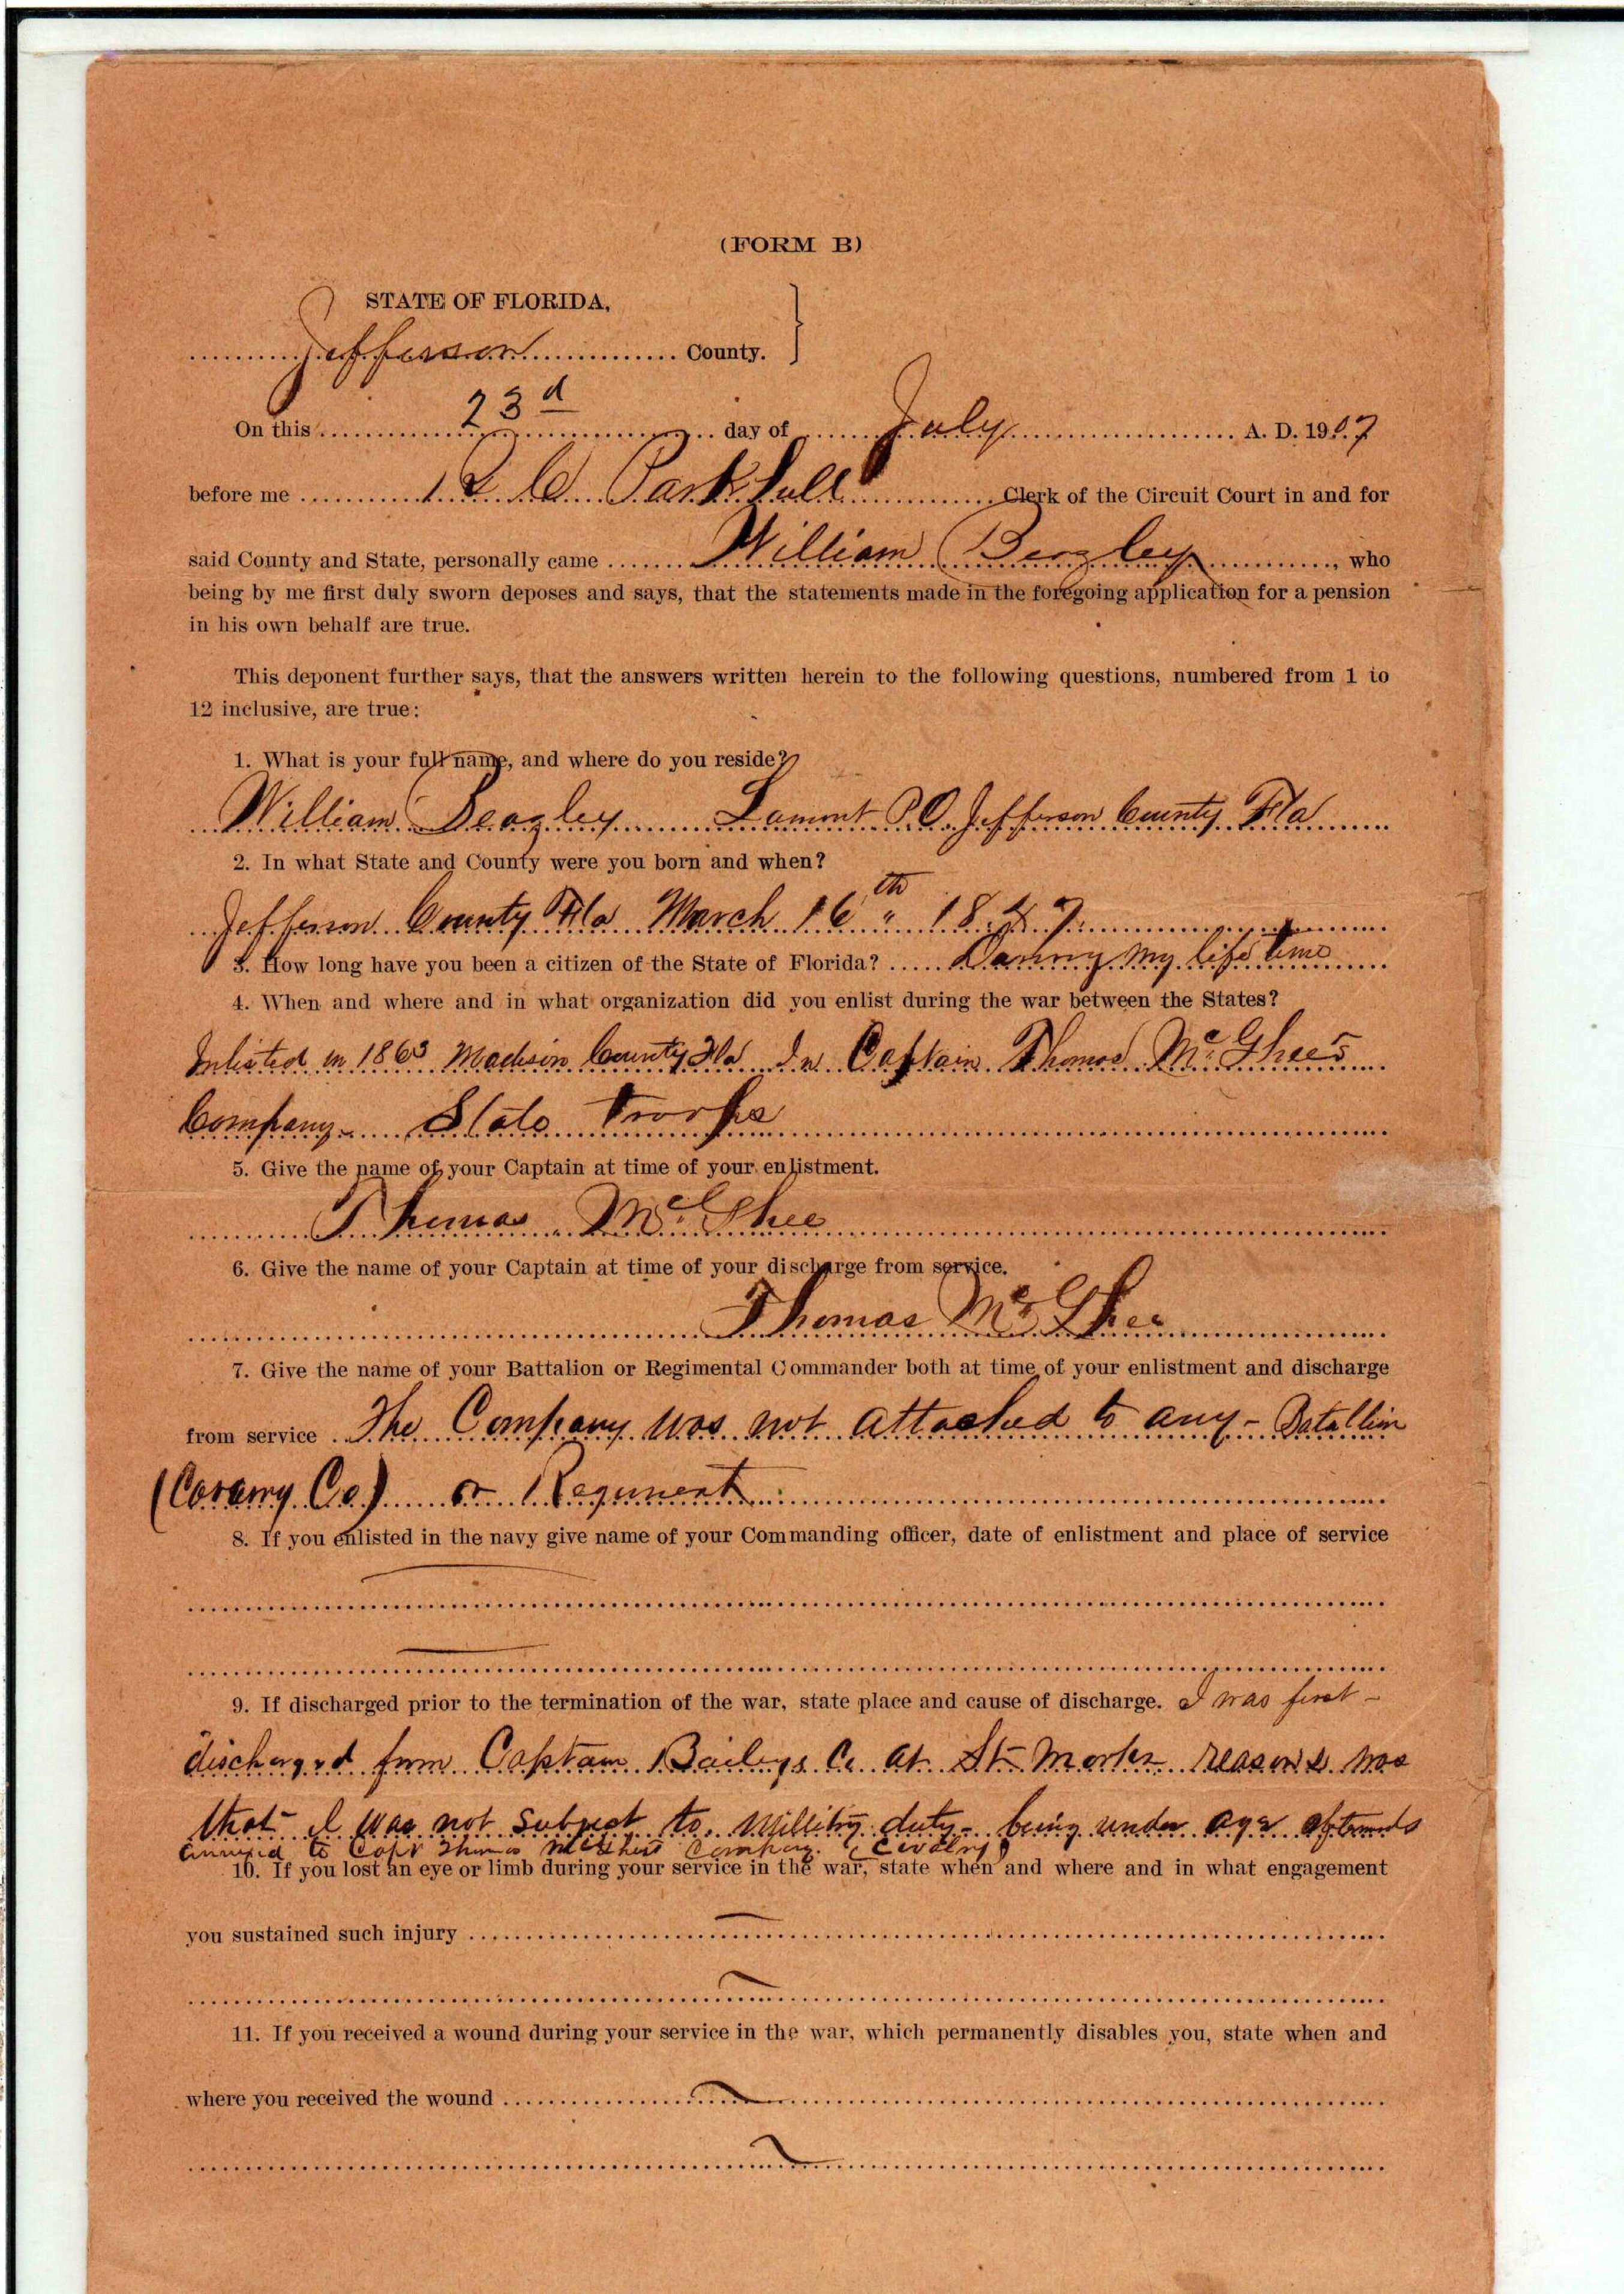 (FORM B)
STATE OF FLORIDA,
Jefferson County.
On this 23d day of July A. D. 1907
before me R C Parkhill Clerk of the Circuit Court in and for
said County and State, personally came William Beazley, who
being by me first duly sworn deposes and says, that the statements made in the foregoing application for a pension
in his own behalf are true.
This deponent further says, that the answers written herein to the following questions, numbered from 1 to
12 inclusive, are true:
1. What is your full name, and where do you reside?
William Beazley Lamont P.O. Jefferson County Fla
2. In what State and County were you born and when?
Jefferson County Fla March 16th " 1847
3. How long have you been a citizen of the State of Florida? During my life time
4. When and where and in what organization did you enlist during the war between the States?
Inlisted in 1863 Madison County Fla In Captain Thomas McGhee's
Company State Troops
5. Give the name of your Captain at time of your enlistment.
Thomas McGhee
6. Give the name of your Captain at time of your discharge from service.
Thomas McGhee
7. Give the name of your Battalion or Regimental Commander both at time of your enlistment and discharge
from service The Company was not attached to any - Batallion
(Cavarry Co) or Regiment
8. If you enlisted in the navy give name of your Commanding officer, date of enlistment and place of service
9. If discharged prior to the termination of the war, state place and cause of discharge. I was first -
discharged from Captain Baileys Co at St Marks reasons was
that I was not subject to duty - being under age
to Capt Thomas McGhees Company.
10. If you lost an eye or limb during your service in the war, state when and where and in what engagement
you sustained such injury
11. If you received a wound during your service in the war, which permanently disables you, state when and
where you received the wound